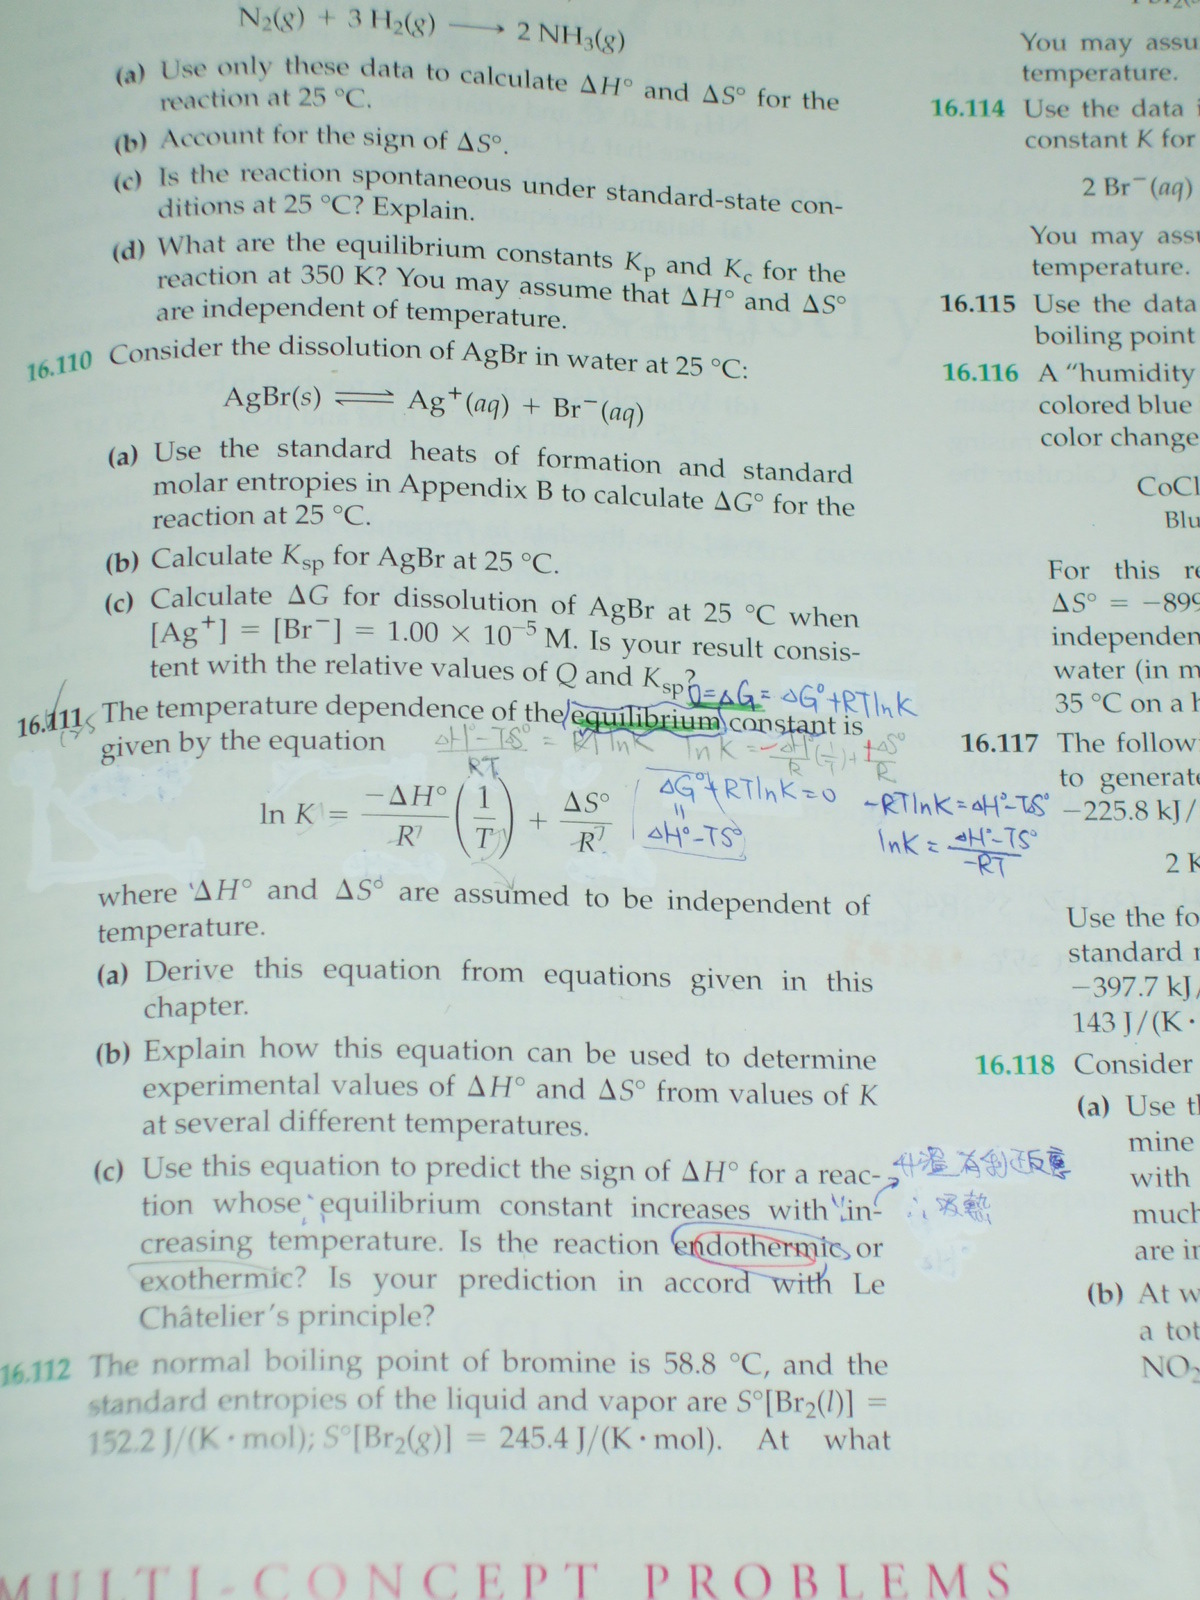 N₂(g) + 3 H₂(g) ⟶ 2 NH₃(g)
(a) Use only these data to calculate ΔH° and ΔS° for the
reaction at 25 °C.
(b) Account for the sign of ΔS°.
(c) Is the reaction spontaneous under standard-state con-
ditions at 25 °C? Explain.
(d) What are the equilibrium constants Kp and Kc for the
reaction at 350 K? You may assume that ΔH° and ΔS°
are independent of temperature.
16.110 Consider the dissolution of AgBr in water at 25 °C:
AgBr(s) ⇌ Ag⁺(aq) + Br⁻(aq)
(a) Use the standard heats of formation and standard
molar entropies in Appendix B to calculate ΔG° for the
reaction at 25 °C.
(b) Calculate Ksp for AgBr at 25 °C.
(c) Calculate ΔG for dissolution of AgBr at 25 °C when
[Ag⁺] = [Br⁻] = 1.00 × 10⁻⁵ M. Is your result consis-
tent with the relative values of Q and Ksp?
0=ΔG = ΔG°+RTlnK
16.111 The temperature dependence of the equilibrium constant is
given by the equation
ln K = −ΔH°/R (1/T) + ΔS°/R
ΔG°+RTlnK=0
ΔH°-TS°
-RTlnK=ΔH°-TS°
lnK = ΔH°-TS°/-RT
where ΔH° and ΔS° are assumed to be independent of
temperature.
(a) Derive this equation from equations given in this
chapter.
(b) Explain how this equation can be used to determine
experimental values of ΔH° and ΔS° from values of K
at several different temperatures.
(c) Use this equation to predict the sign of ΔH° for a reac-
tion whose equilibrium constant increases with in-
creasing temperature. Is the reaction endothermic or
exothermic? Is your prediction in accord with Le
Châtelier's principle?
升溫有利正反應
∴吸熱
16.112 The normal boiling point of bromine is 58.8 °C, and the
standard entropies of the liquid and vapor are S°[Br₂(l)] =
152.2 J/(K · mol); S°[Br₂(g)] = 245.4 J/(K · mol). At what
You may assu
temperature.
16.114 Use the data
constant K for
2 Br⁻(aq)
You may ass
temperature.
16.115 Use the data
boiling point
16.116 A "humidity
colored blue
color change
CoCl
Blu
For this re
ΔS° = −899
independen
water (in m
35 °C on a h
16.117 The follow
to generate
−225.8 kJ/
2 K
Use the fo
standard
−397.7 kJ/
143 J/(K ·
16.118 Consider
(a) Use th
mine
with
much
are in
(b) At w
a tot
NO₂
MULTI-CONCEPT PROBLEMS